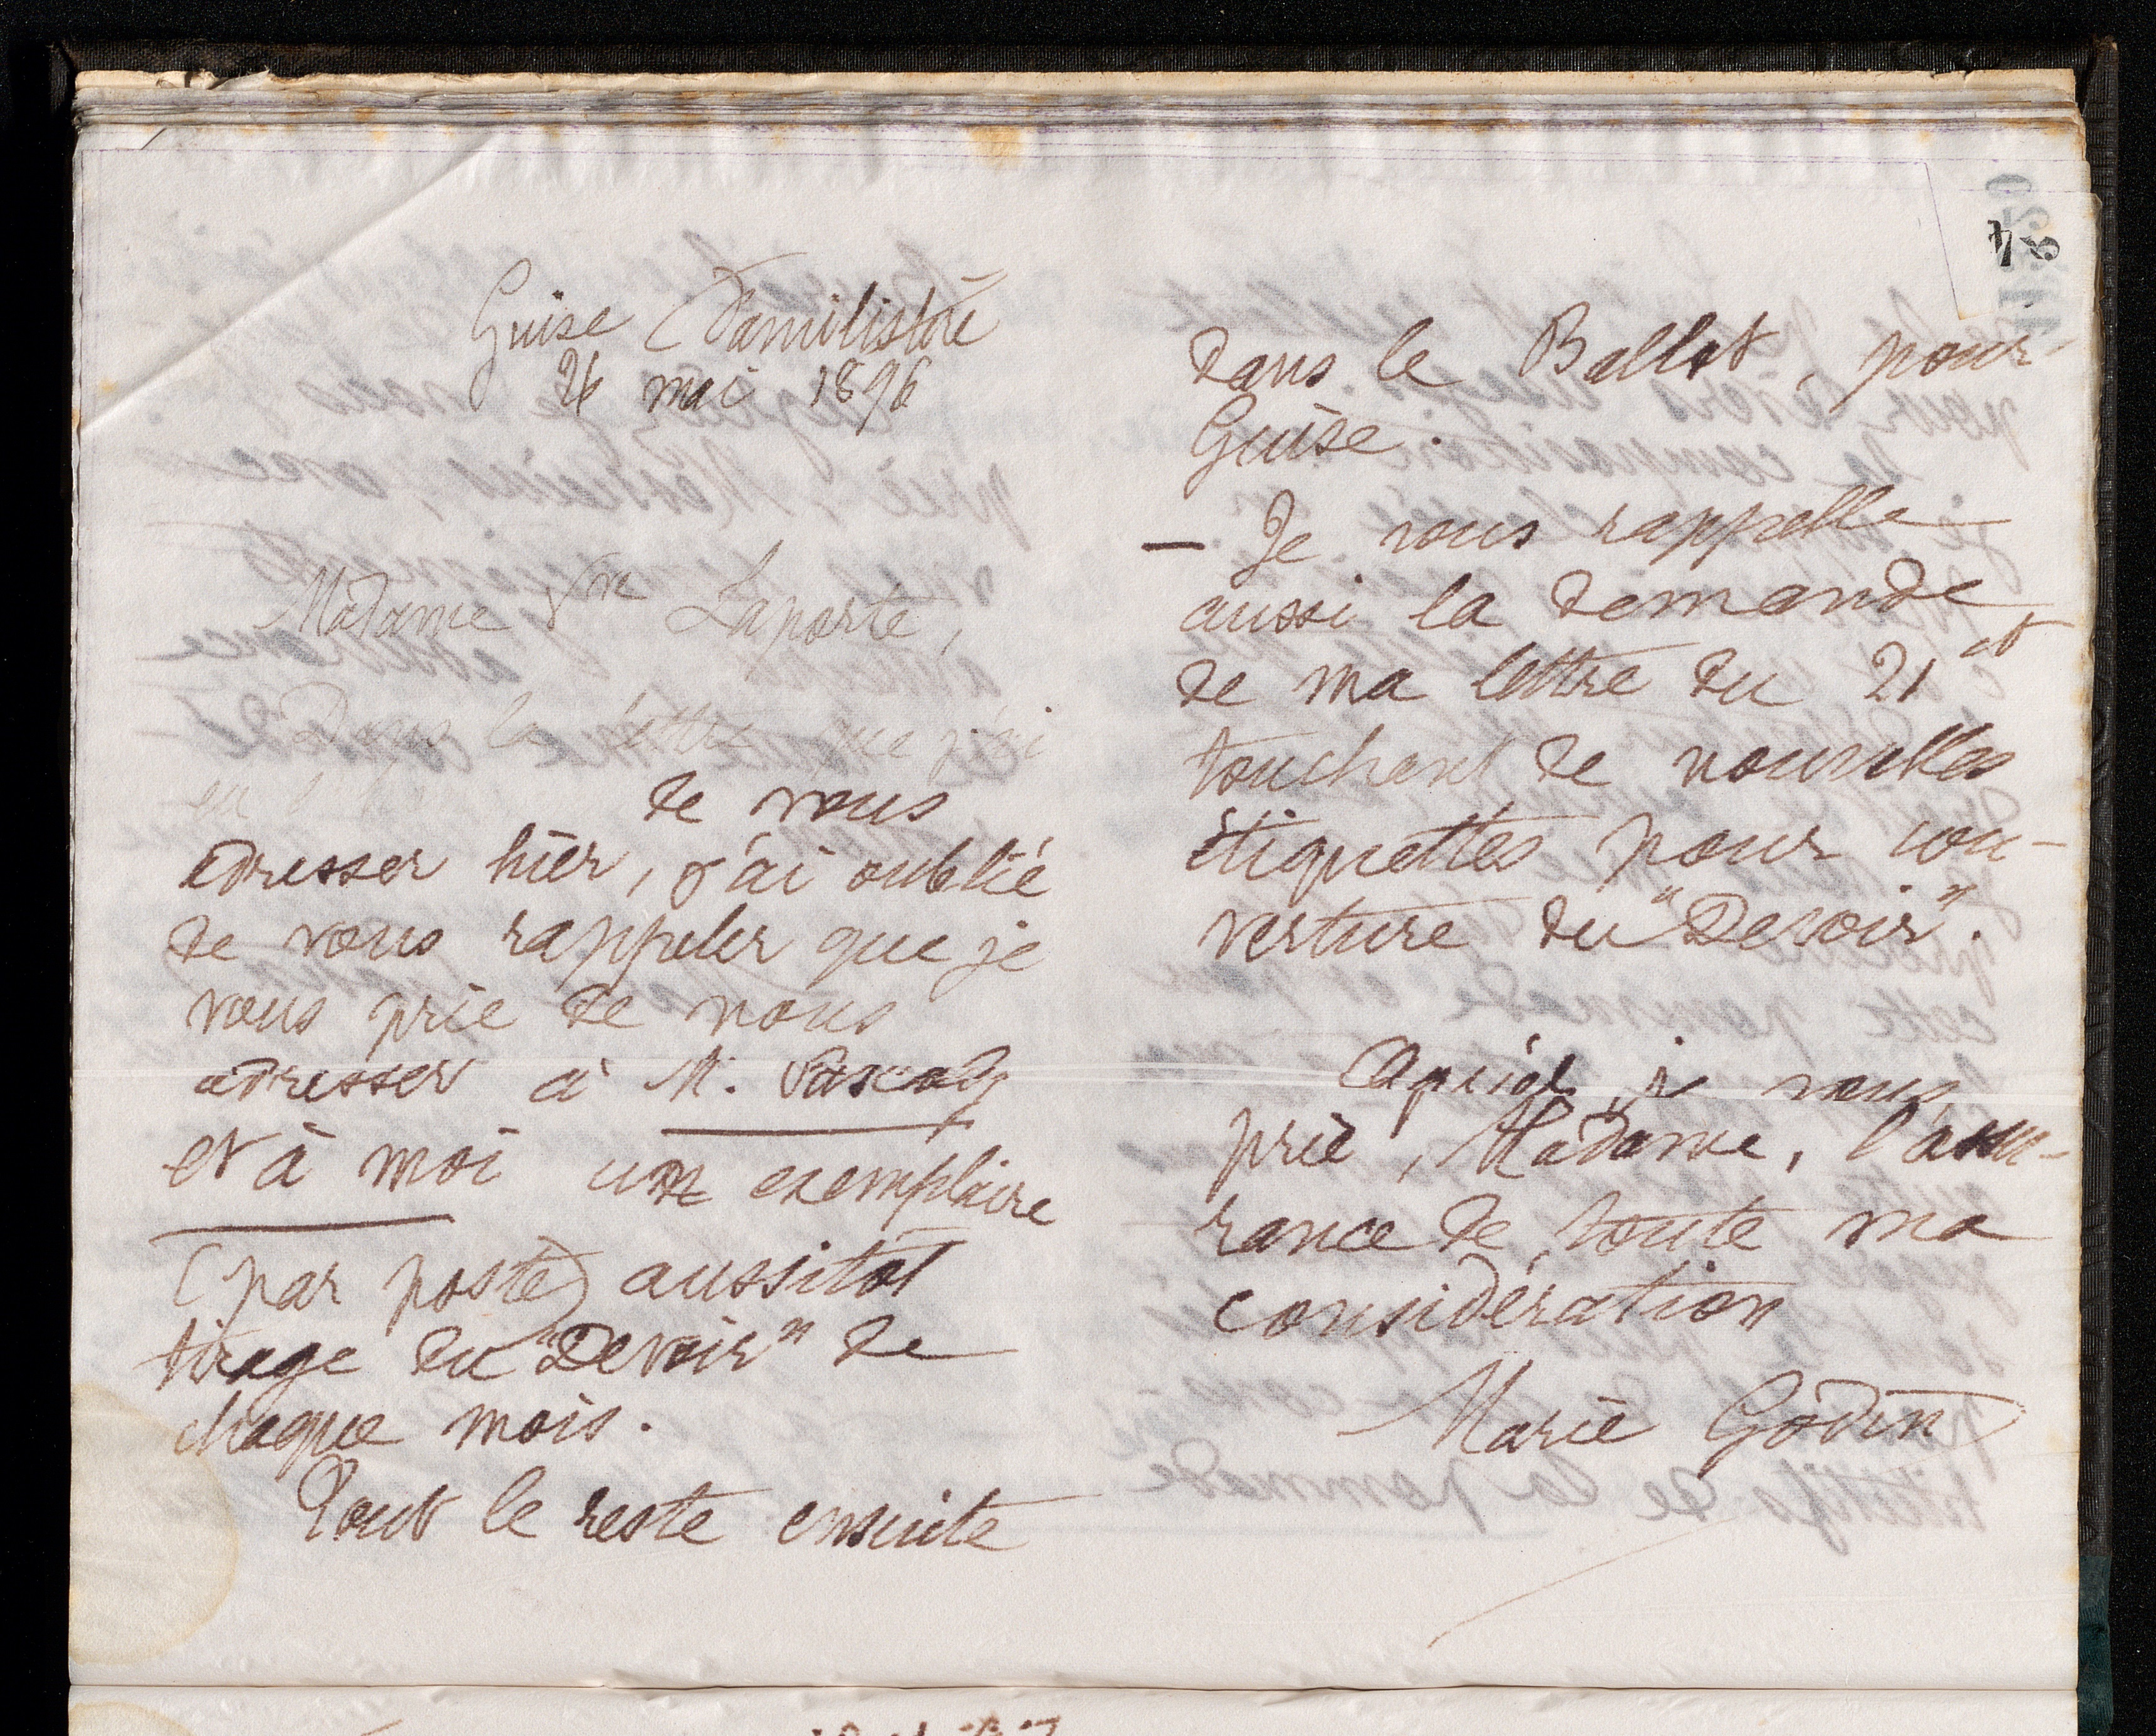 Guise Familistère
26 mai 1896
Madame Vve Laporte,
Dans la lettre que j'ai
eu de vous
adresser hier, j'ai oublié
de vous rappeler que je
vous prie de nous
adresser à M. Pascaly
et à moi un exemplaire
(par poste) aussitôt
tirage du "Devoir" de
chaque mois.
Tout le reste ensuite
dans le Ballot, pour
Guise.
— Je vous rappelle
aussi la demande
de ma lettre du 21 ct
touchant de nouvelles
étiquettes pour cou-
verture du "Devoir".
Agréez, je vous
prie, Madame, l'assu-
rance de toute ma
considération
Marie Godin